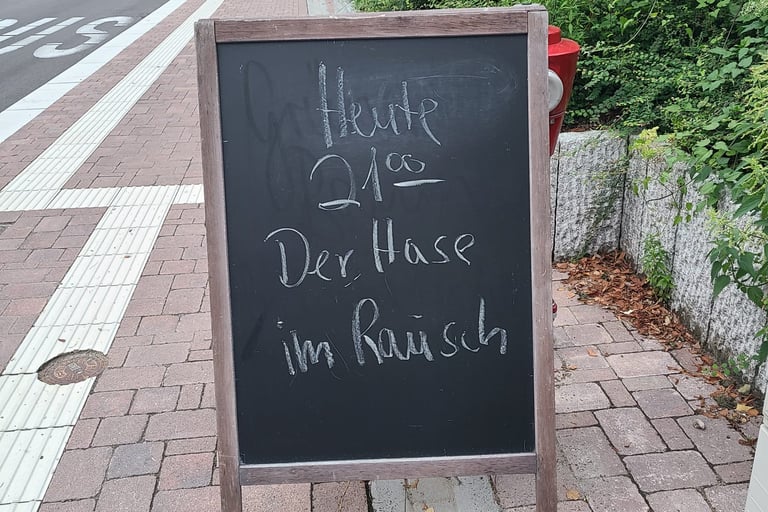 Heute
21⁰⁰
Der Hase
im Rausch
BUS